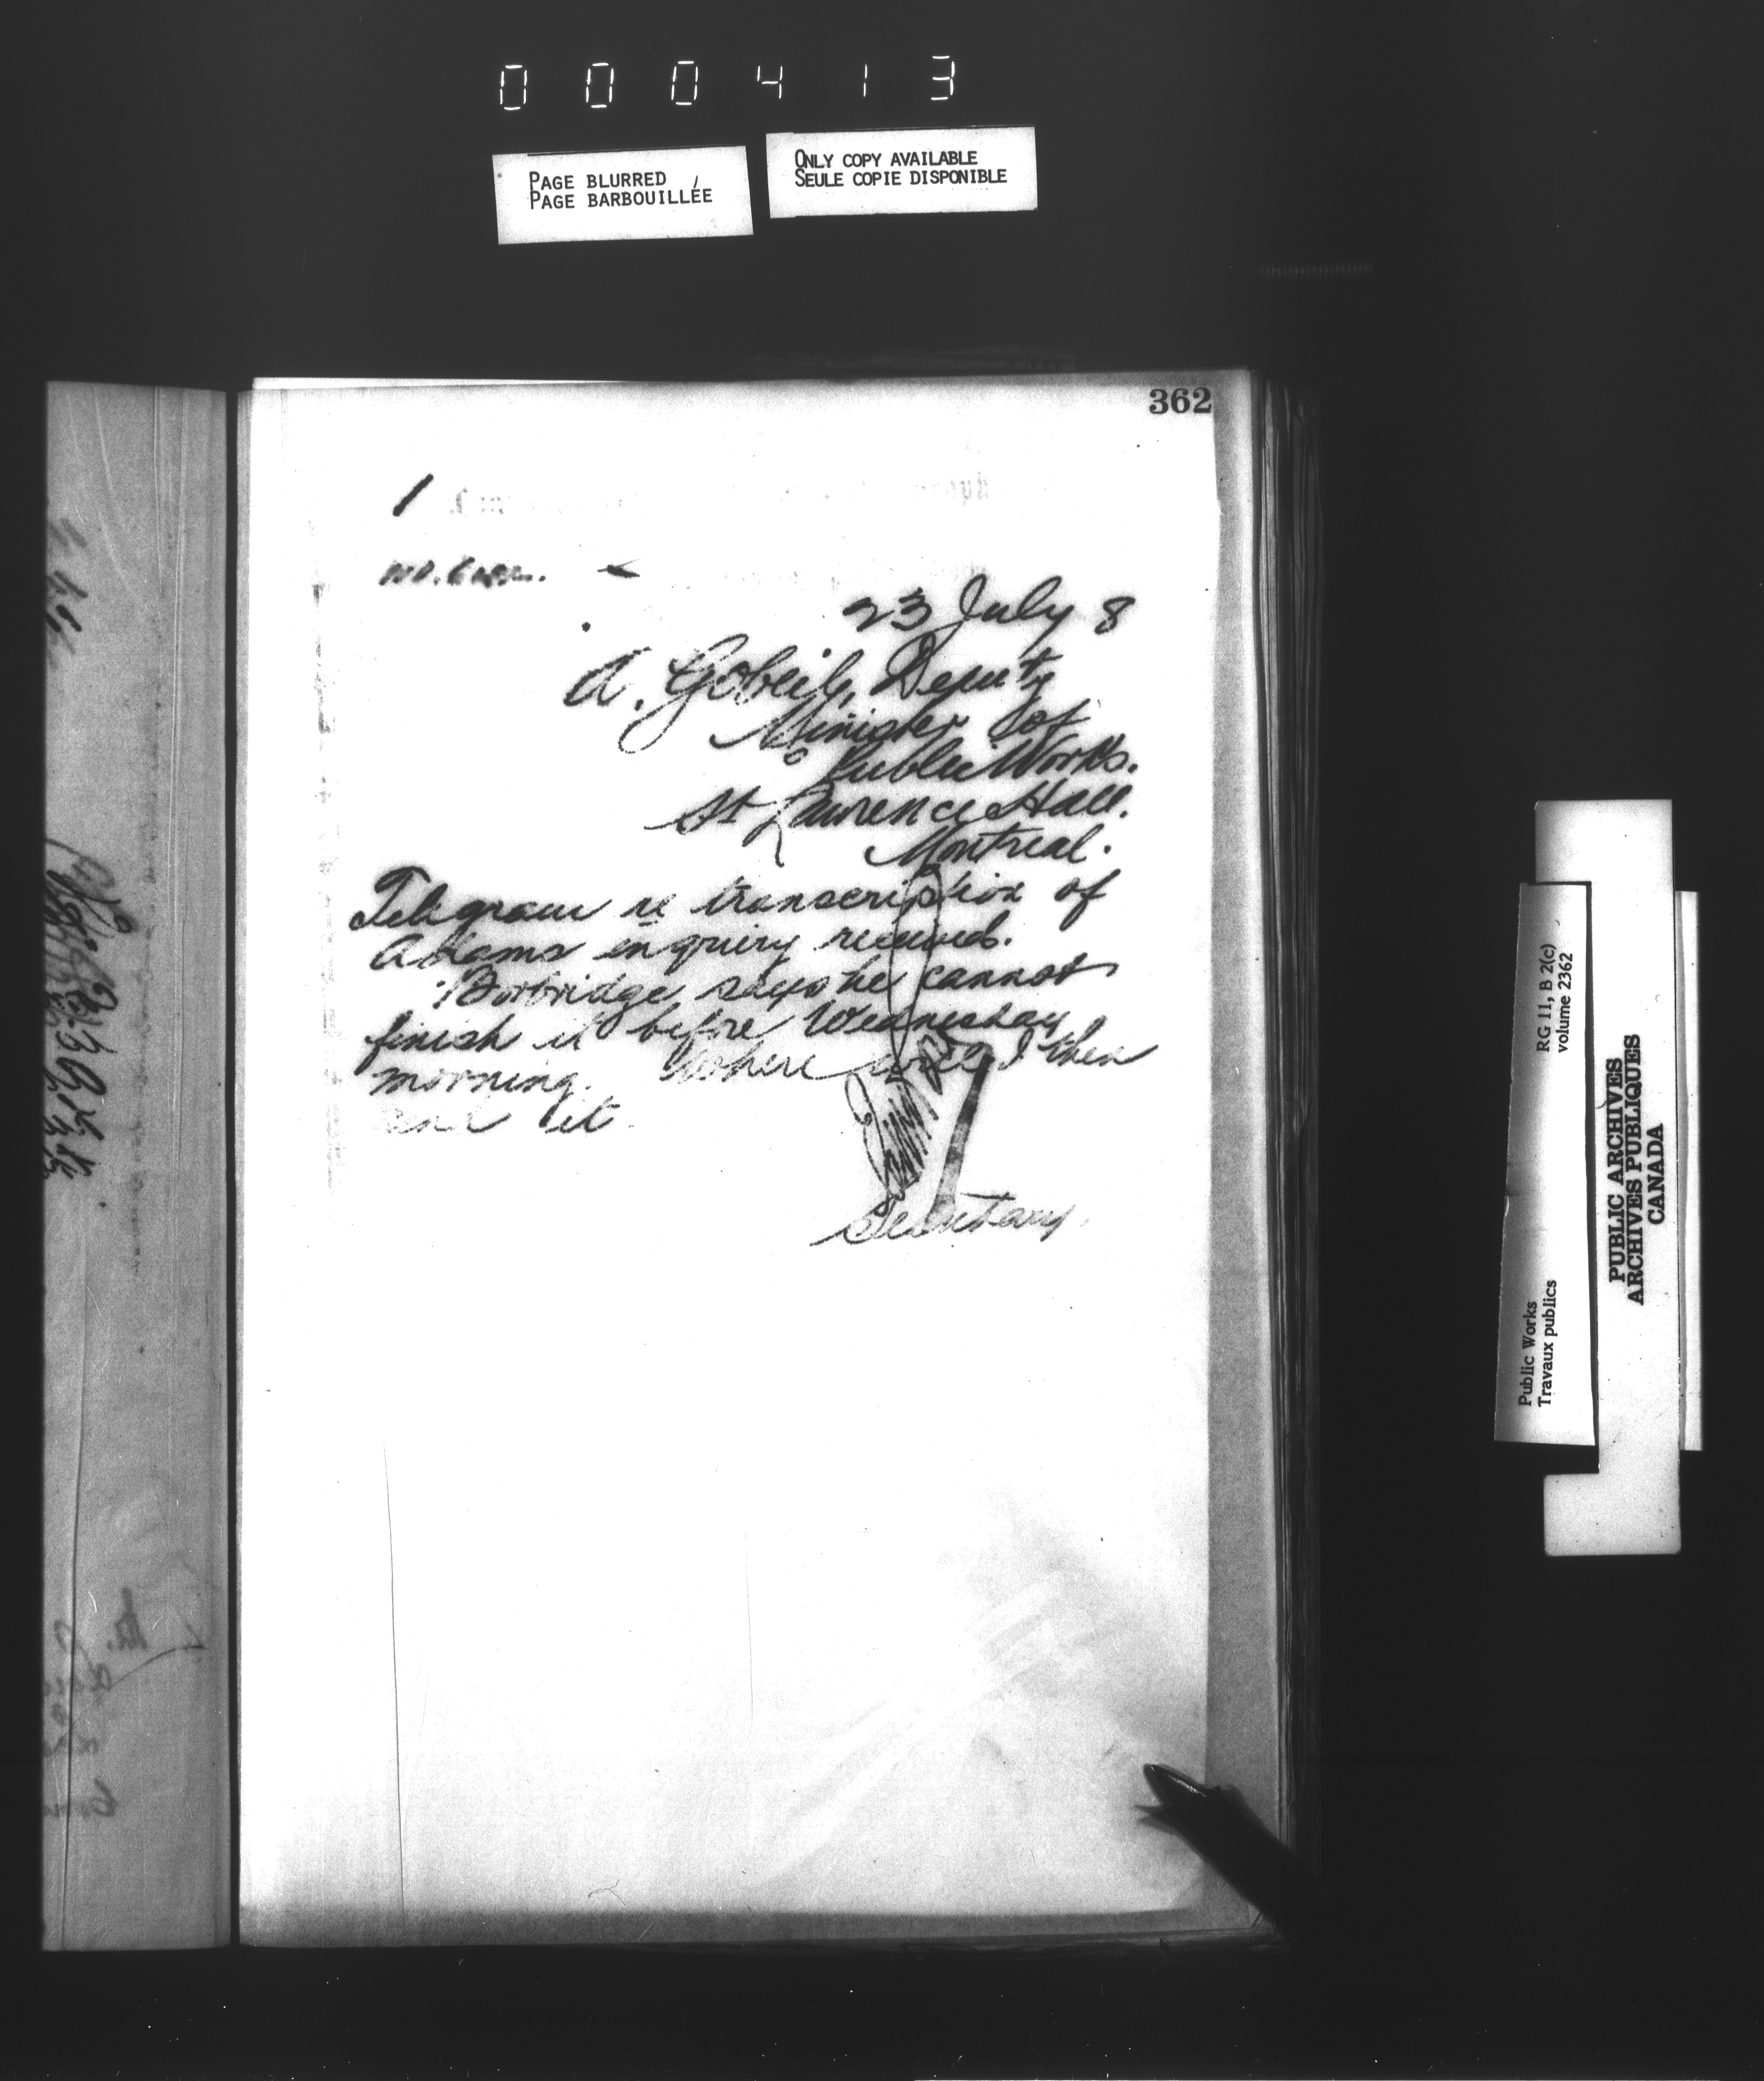 000413
PAGE BLURRED
PAGE BARBOUILLÉE
ONLY COPY AVAILABLE
SEULE COPIE DISPONIBLE
362
1
no.
23 July 8
A. Gobeil, Deputy
Minister of
Public Works.
St Lawrence Hall.
Montreal.
Telegram re transcription of
Adams enquiry received.
Borbridge says he cannot
finish it before Wednesday
morning. Where will I then
send it
Secretary.
Public Works
Travaux publics
RG 11, B 2(c)
volume 2362
PUBLIC ARCHIVES
ARCHIVES PUBLIQUES
CANADA